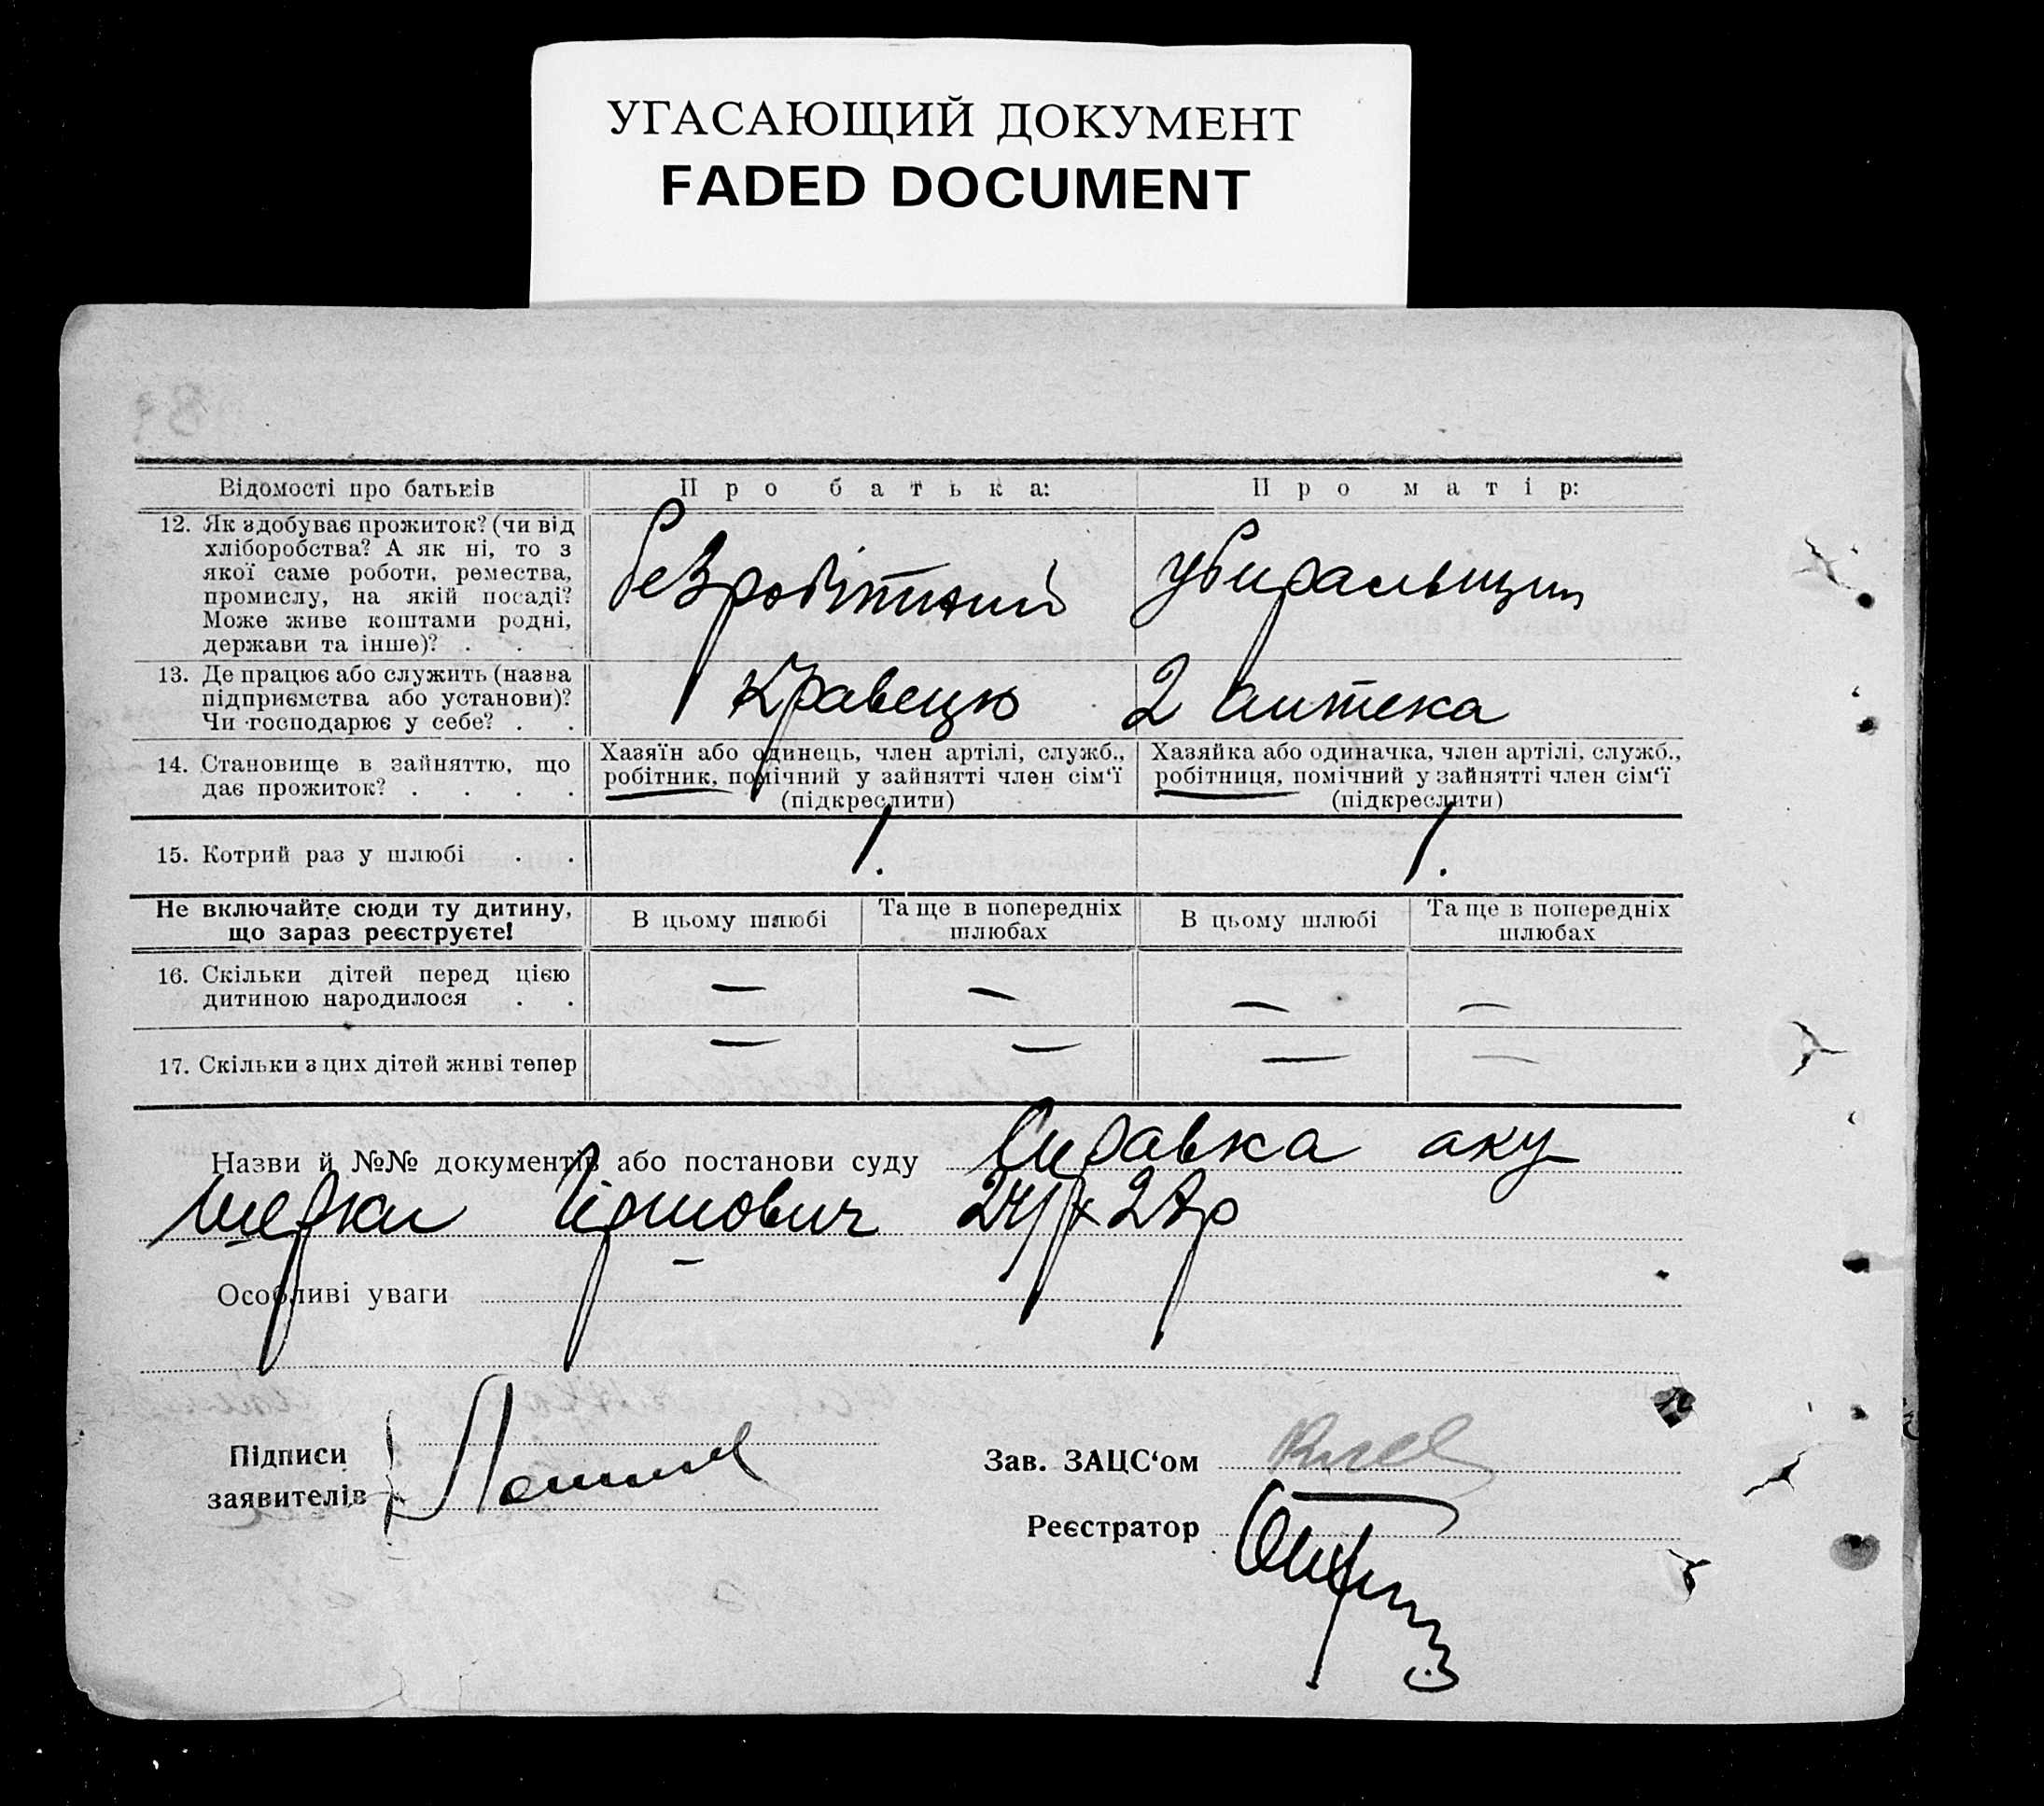 УГАСАЮЩИЙ ДОКУМЕНТ
FADED DOCUMENT
Відомості про батьків
Про батька:
Про матір:
12. Як здобуває прожиток? (чи від
хліборобства? А як ні, то з
якої саме роботи, ремества,
промислу, на якій посаді?
Може живе коштами родні,
держави та інше)? . . .
безробітний
убиральщиц
13. Де працює або служить (назва
підприємства або установи)?
Чи господарює у себе? . .
Кравецю
2 аптека
14. Становище в зайняттю, що
дає прожиток? . . . .
Хазяїн або одинець, член артілі, служб.,
робітник, помічний у зайнятті член сім‘ї
(підкреслити)
Хазяйка або одиначка, член артілі, служб.,
робітниця, помічний у зайнятті член сім‘ї
(підкреслити)
15. Котрий раз у шлюбі . .
1.
1.
Не включайте сюди ту дитину,
що зараз реєструєте!
В цьому шлюбі
Та ще в попередніх
шлюбах
В цьому шлюбі
Та ще в попередніх
шлюбах
16. Скільки дітей перед цією
дитиною народилося . .
— — — —
17. Скільки з цих дітей живі тепер
— — — —
Назви й №№ документів або постанови суду Справка аку
шерки Гіршович
Особливі уваги
Підписи
заявителів
Зав. ЗАЦС‘ом
Реєстратор